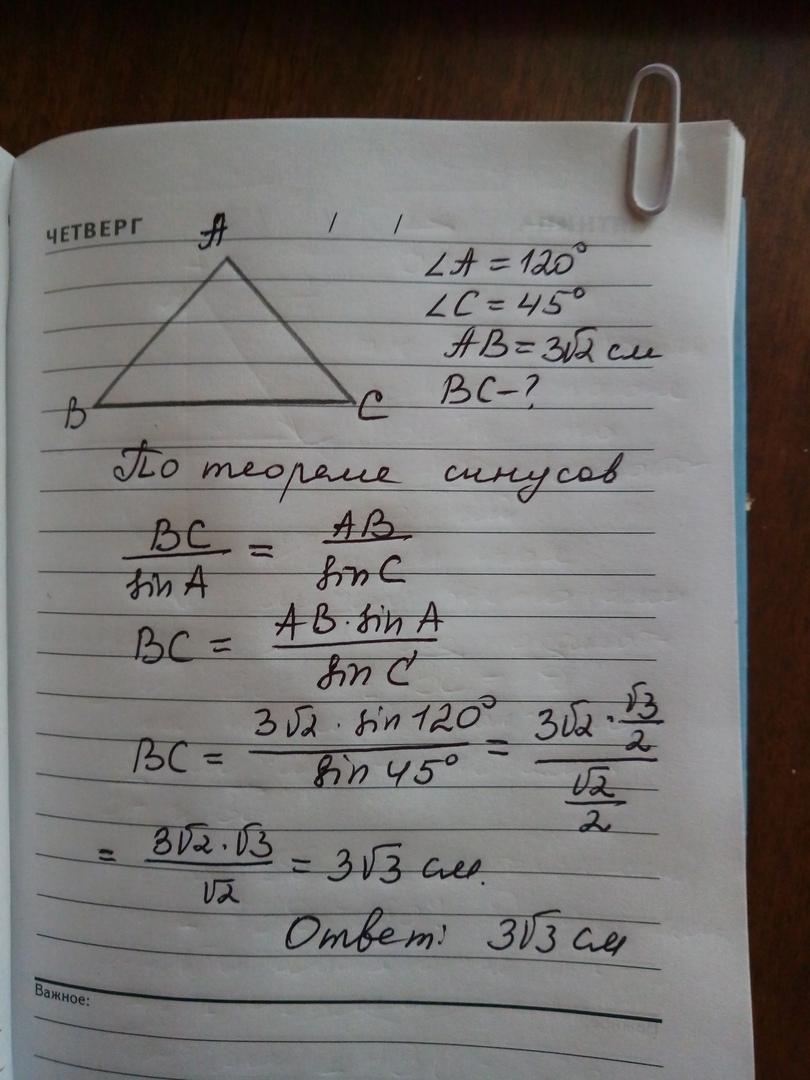 ЧЕТВЕРГ / /
A
∠A = 120°
∠C = 45°
AB = 3√2 см
B C BC - ?
По теореме синусов
BC/sin A = AB/sin C
BC = AB · sin A/sin C
BC = 3√2 · sin 120°/sin 45° = 3√2 · √3/2/√2/2
= 3√2 · √3/√2 = 3√3 см.
Ответ: 3√3 см
Важное: